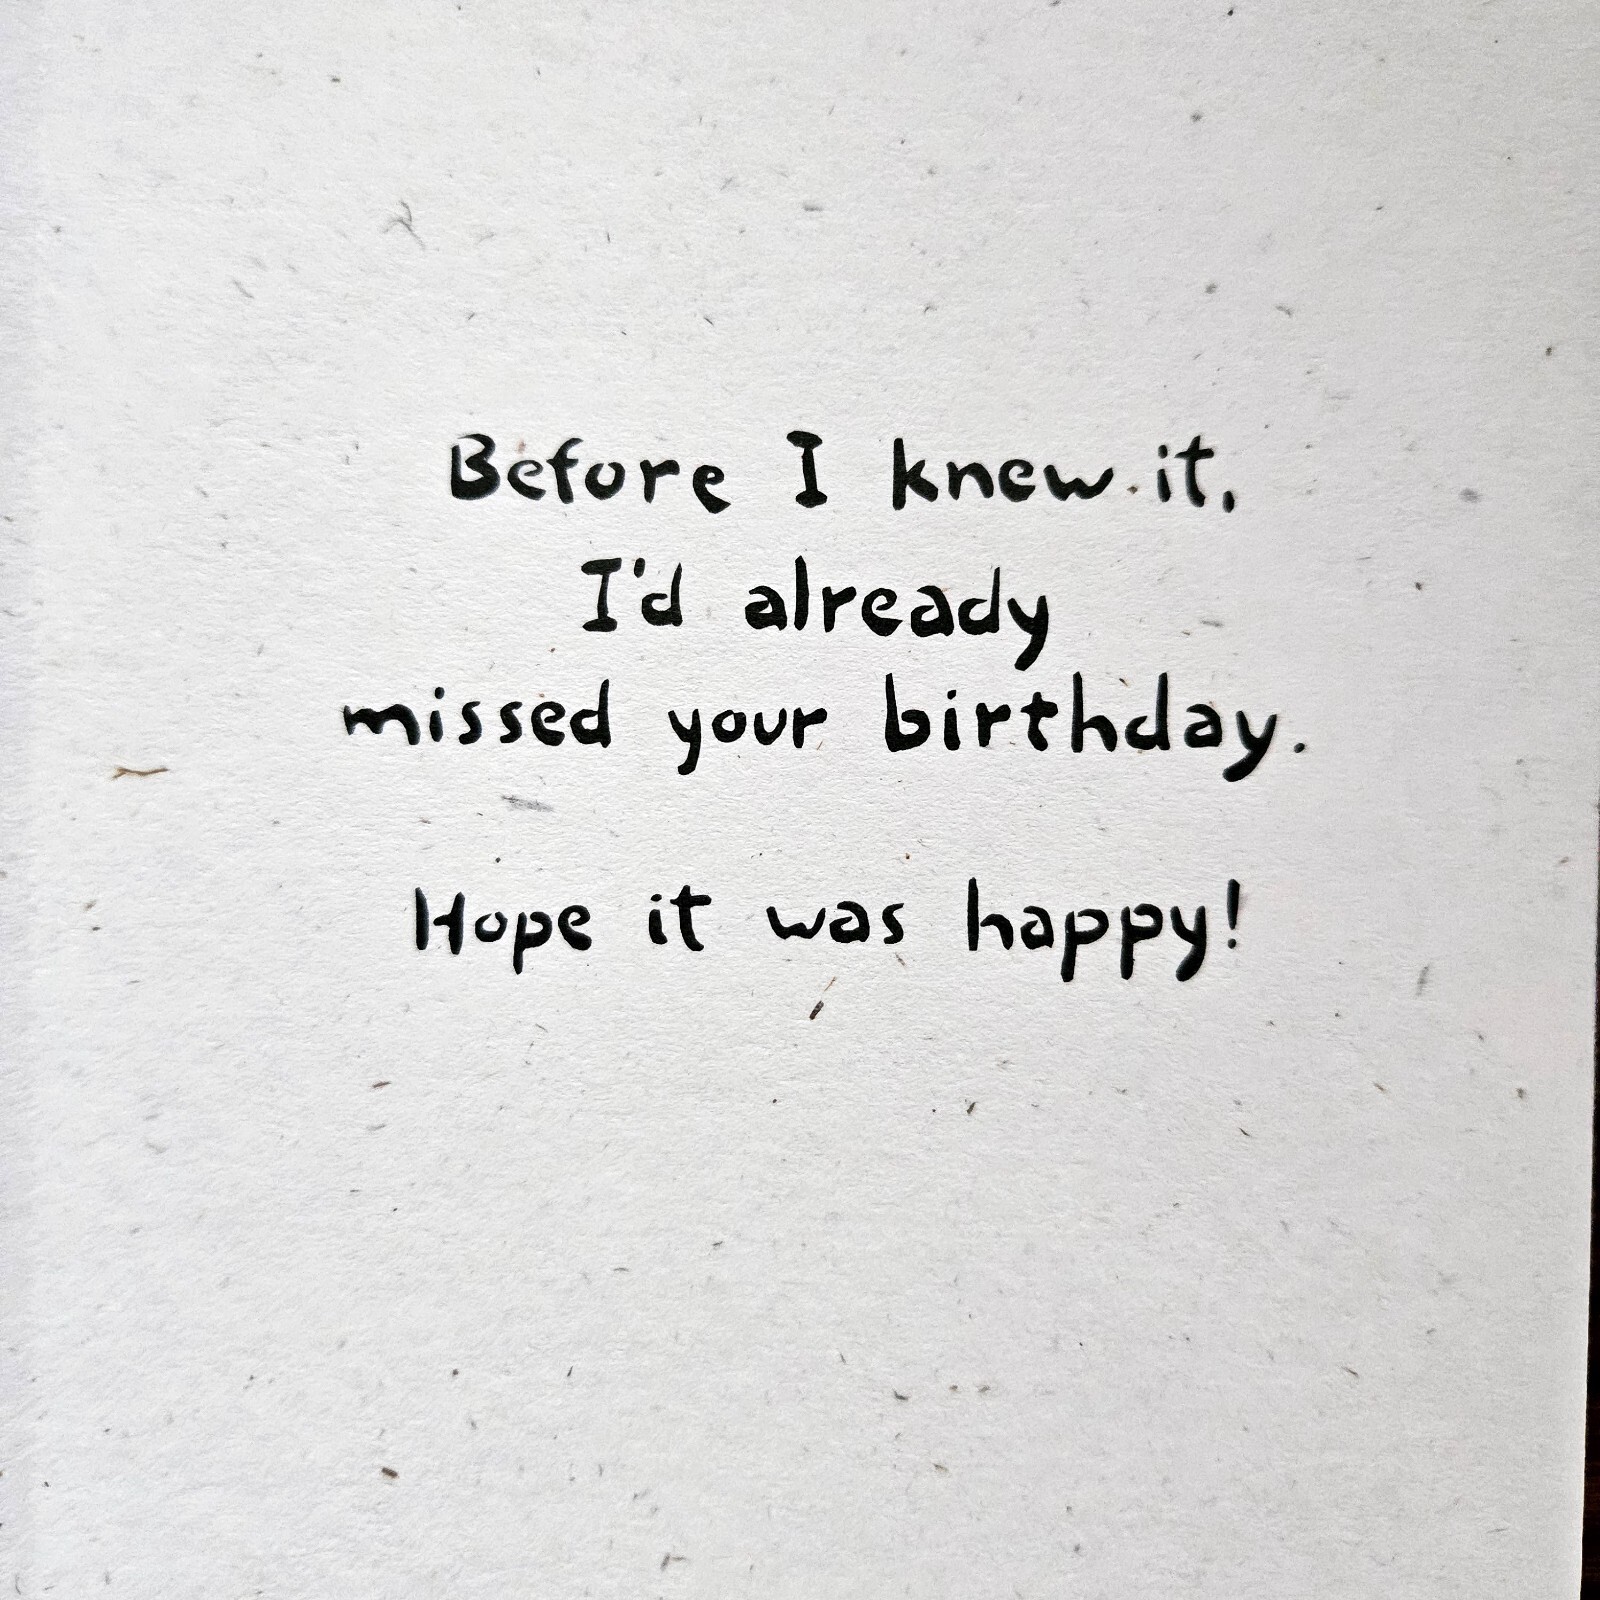 Before I knew it,
I'd already
missed your birthday.
Hope it was happy!